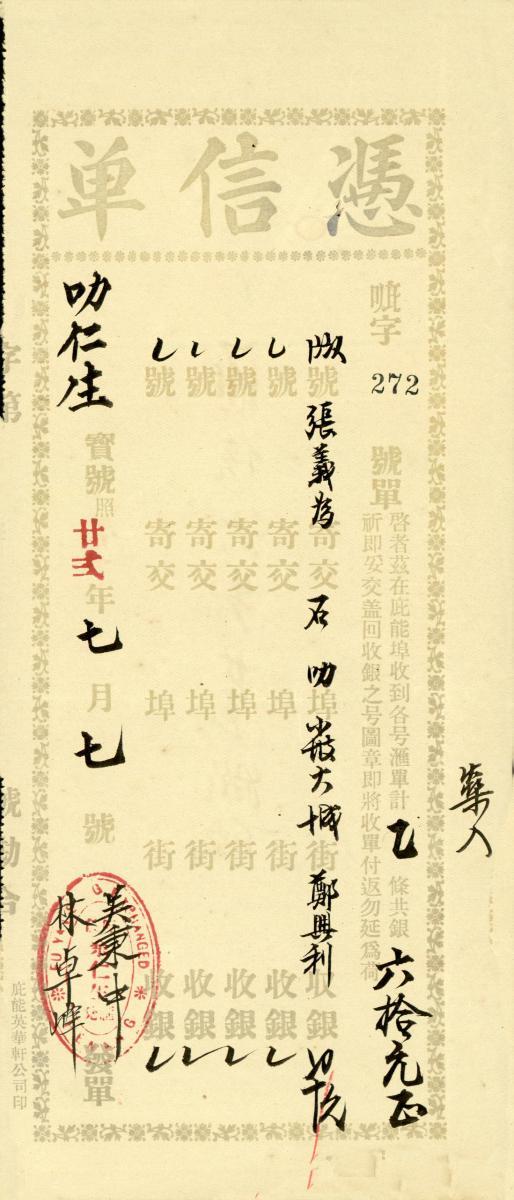 憑信單
呲字
272
號單
啓者茲在庇能埠收到各号滙單計乙條共銀六拾元正
祈即妥交盖回收銀之号圖章即將收單付返勿延爲荷
號張義為寄交石叻埠大城街鄭興利收銀
號寄交埠街收銀
號寄交埠街收銀
號寄交埠街收銀
號寄交埠街收銀
叻仁生寶號照
廿弍年七月七號
吴秉中
林卓
發單
CHANGED
庇能英華軒公司印
字第
號